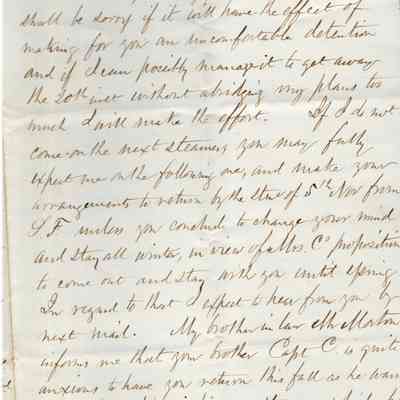 shall be sorry if it will have the effect of
making for you an uncomfortable detention
and if I can possibly manage it to get away
the 20th inst without abridging my plans too
much I will make the effort. If I do not
come on the next steamer, you may fully
expect me on the following one, and make your
arrangements to return by the Stmr of 5th Nov from
S. F. unless you conclude to change your mind
and stay all winter, in view of Mrs. Cs proposition
to come out and stay with you until spring
In regard to that I expect to hear from you by
next mail. My brother in law Mr Morton
informs me that your brother Capt C. is quite
anxious to have you return this fall as he